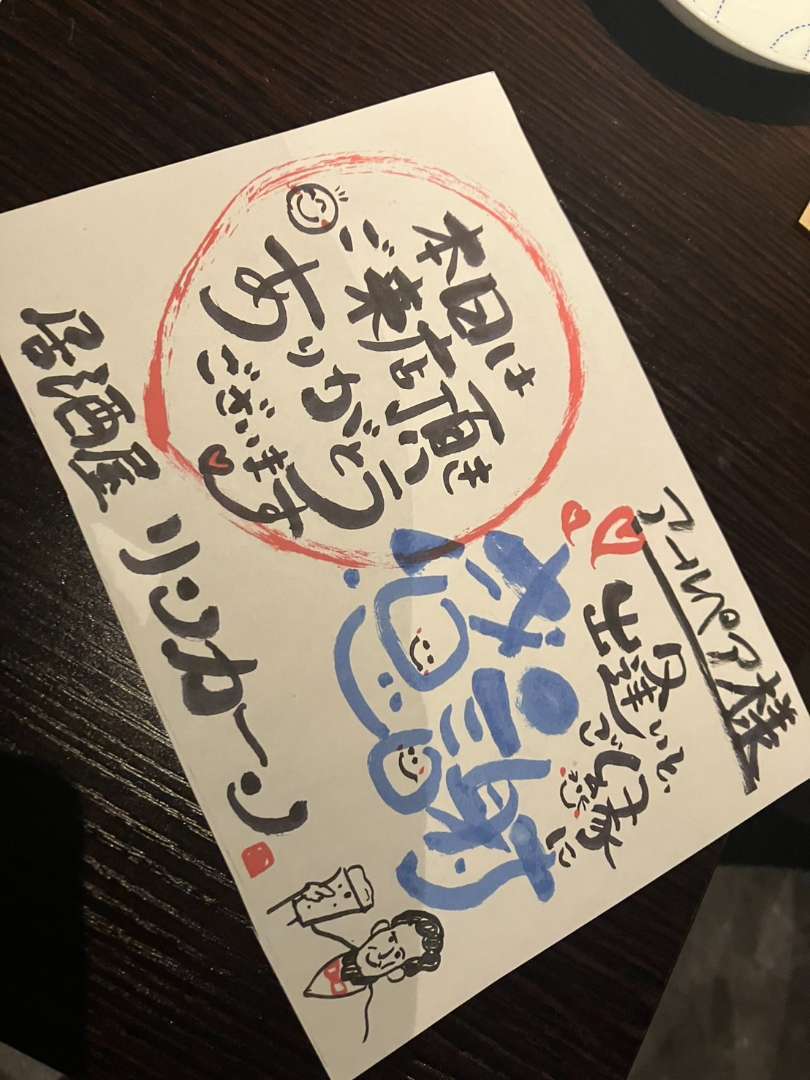 アールペア様
出逢いと、
ご縁に
感謝
本日は
ご来店頂き
ありがとう
ございます
居酒屋 リンカーン